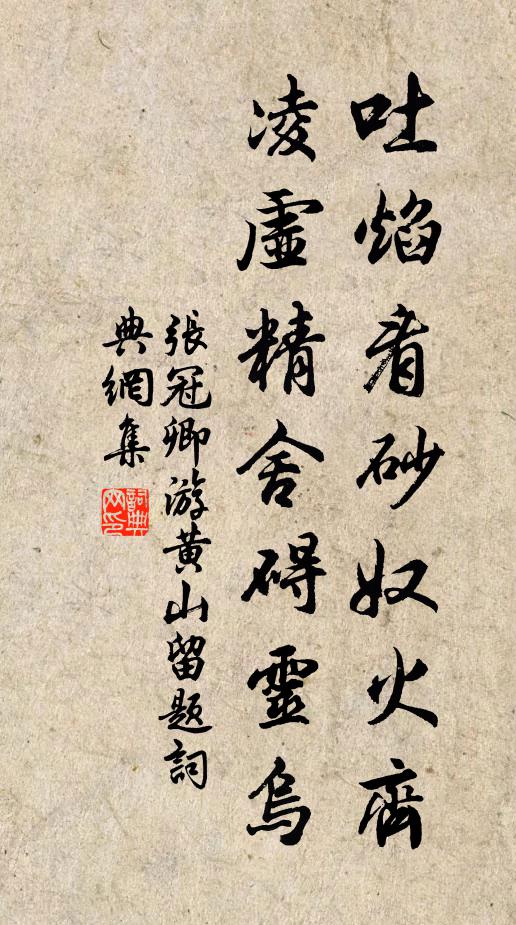 吐焰看砂奴火齊
凌虛精舍碍靈烏
張冠卿游黄山留題詞
典網集
詞典網印